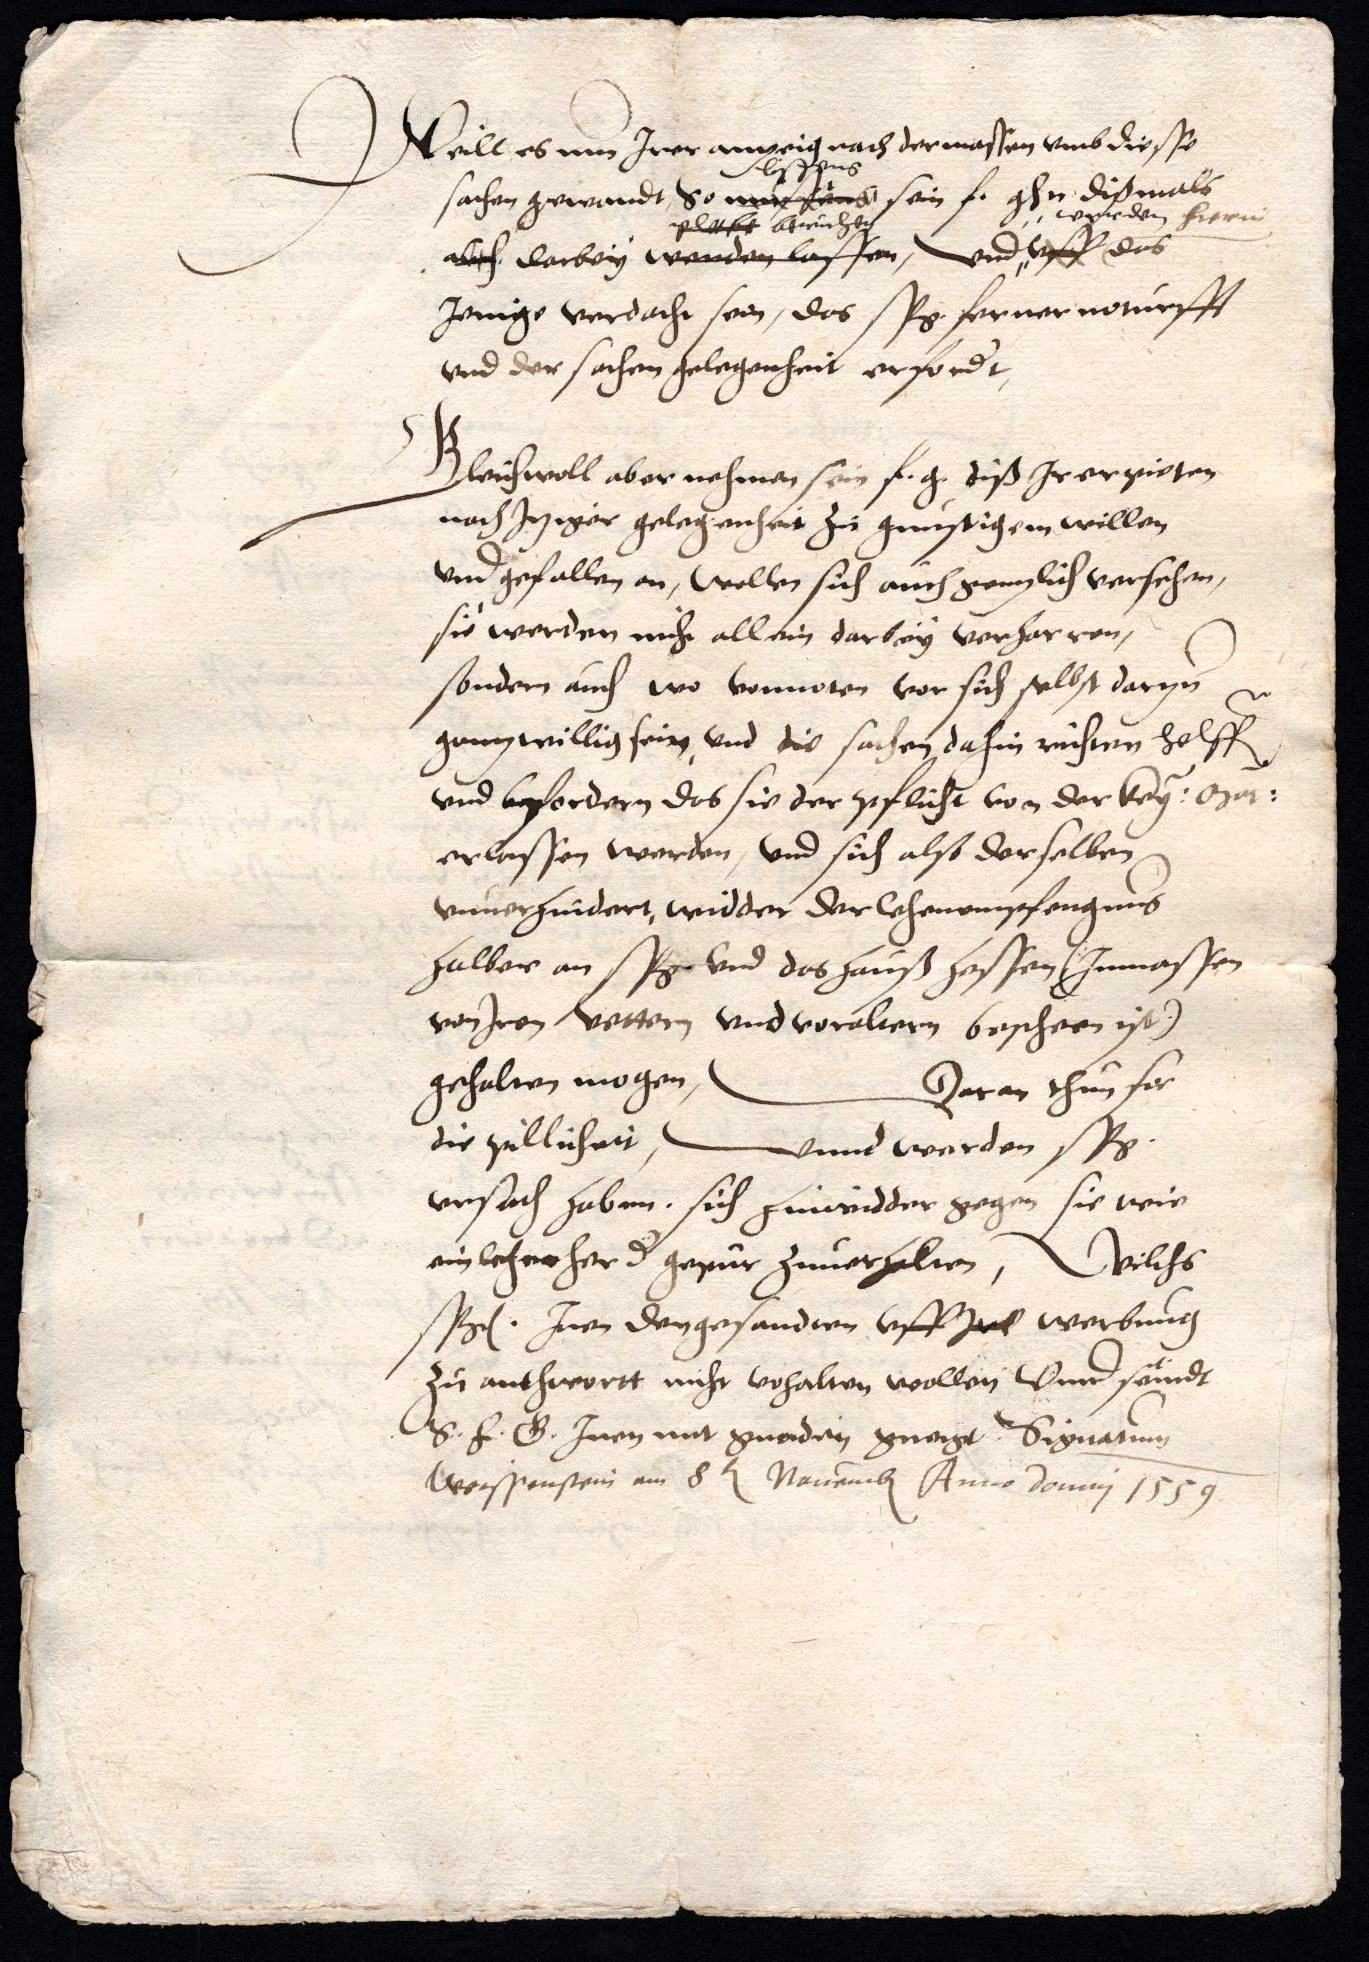 Weill es nun Irer anzeig nach dermassen umb diesse
liessens
sachen gewandt, So sein f. g. dißmals
wurden hierin
auch darbey wenden lassen, und uff das
Jenige verdacht sein, das s f g ferner noturfft
und der sachen gelegenheit erfordt,
Gleichwoll aber nehmen sein f. g. diß Ir erpieten
nach Itziger gelegenheit zu gunstigem willen
und gefallen an, wollen sich auch gentzlich versehen,
sie werden nicht allein darbey verharren,
sondern auch wo vonnoten vor sich selbst darzu
gantz willig sein, und die sachen dahin richten helffen
und befordern das sie der pflicht von der Key: Mat:
erlassen werden, und sich alß derselben
unverhindert, widder der lehenempfengnus
halber an s f g. und das hauß hessen (Inmassen
von Iren vettern und voraltern bescheen ist)
gehalten mogen, Daran thun sie
die pillicheit, unnd werden s f g.
ursach haben. sich hinwidder gegen sie wie
ein lehenher d gepur zuverhalten, Wilchs
s f g. Inen den gesandten uff Ire werbung
zu anthwortt nicht vohalten wollen Unnd seindt
S. F. G. Inen mit gnaden gneigt. Signatum
Weissenstein am 8 Novemb Anno domini 1559